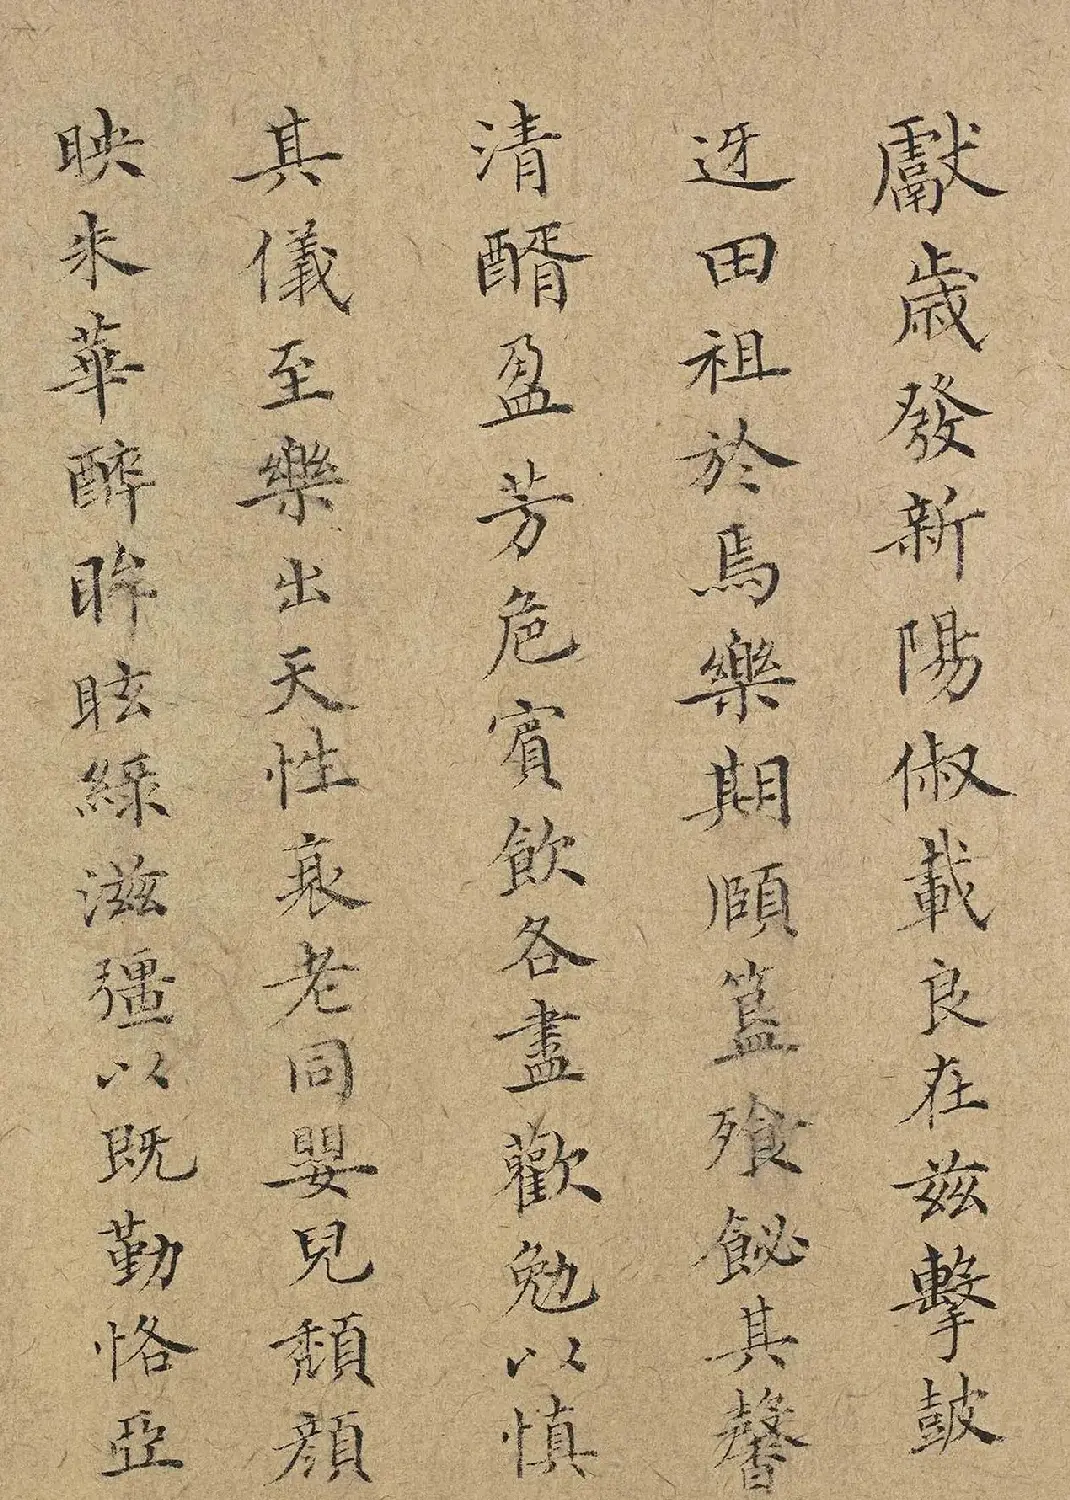 獻歲發新陽俶載良在茲擊鼓
迓田祖於焉樂期頤簋飱飶其馨
清醑盈芳卮賓飲各盡歡勉以慎
其儀至樂出天性衰老同嬰兒頹顏
映朱華醉眸眩綠滋彊以既勤恪亞